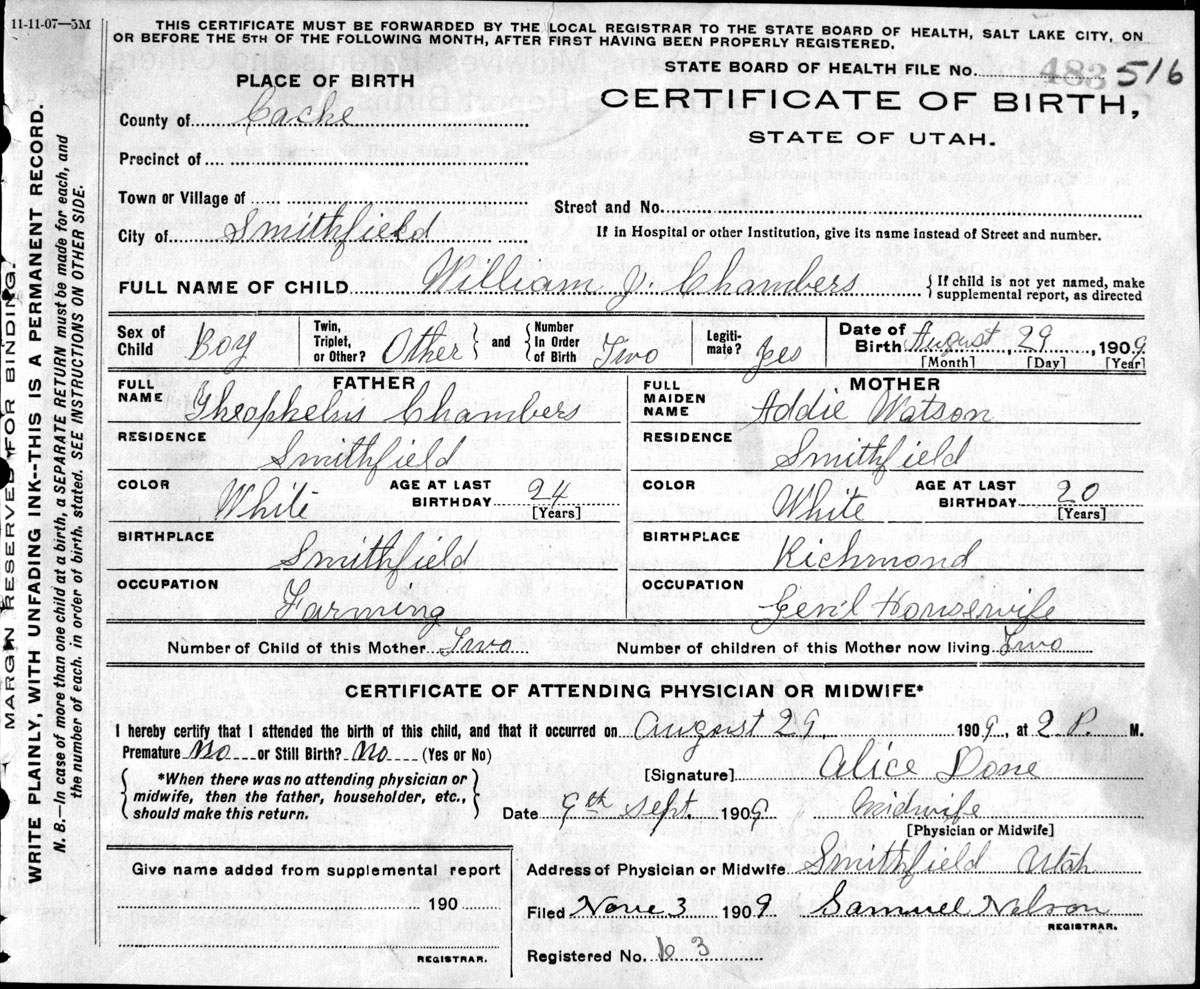 11-11-07—5M
THIS CERTIFICATE MUST BE FORWARDED BY THE LOCAL REGISTRAR TO THE STATE BOARD OF HEALTH, SALT LAKE CITY, ON
OR BEFORE THE 5TH OF THE FOLLOWING MONTH, AFTER FIRST HAVING BEEN PROPERLY REGISTERED.
STATE BOARD OF HEALTH FILE No. 483 516
PLACE OF BIRTH
CERTIFICATE OF BIRTH,
STATE OF UTAH.
County of Cache
Precinct of
Town or Village of
Street and No.
City of Smithfield
If in Hospital or other Institution, give its name instead of Street and number.
FULL NAME OF CHILD William J. Chambers
If child is not yet named, make
supplemental report, as directed
Sex of Child Boy Twin, Triplet, or Other? Other and Number In Order of Birth Two Legiti-mate? Yes Date of Birth August 29, 1909
[Month] [Day] [Year]
FATHER MOTHER
FULL NAME Theophelus Chambers FULL MAIDEN NAME Addie Watson
RESIDENCE Smithfield RESIDENCE Smithfield
COLOR White AGE AT LAST BIRTHDAY 24 [Years] COLOR White AGE AT LAST BIRTHDAY 20 [Years]
BIRTHPLACE Smithfield BIRTHPLACE Richmond
OCCUPATION Farming OCCUPATION Gen'l Housewife
Number of Child of this Mother Two Number of children of this Mother now living Two
CERTIFICATE OF ATTENDING PHYSICIAN OR MIDWIFE*
I hereby certify that I attended the birth of this child, and that it occurred on August 29, 1909, at 2 P. M.
Premature No or Still Birth? No (Yes or No)
[Signature] Alice Done
*When there was no attending physician or
midwife, then the father, householder, etc.,
should make this return.
Date 9th Sept. 1909 Midwife
[Physician or Midwife]
Address of Physician or Midwife Smithfield Utah
Give name added from supplemental report
190
REGISTRAR.
Filed Nove 3 1909 Samuel Nelson
REGISTRAR.
Registered No. 63
MARGIN RESERVED FOR BINDING.
WRITE PLAINLY, WITH UNFADING INK--THIS IS A PERMANENT RECORD.
N. B.—In case of more than one child at a birth, a SEPARATE RETURN must be made for each, and
the number of each, in order of birth, stated. SEE INSTRUCTIONS ON OTHER SIDE.